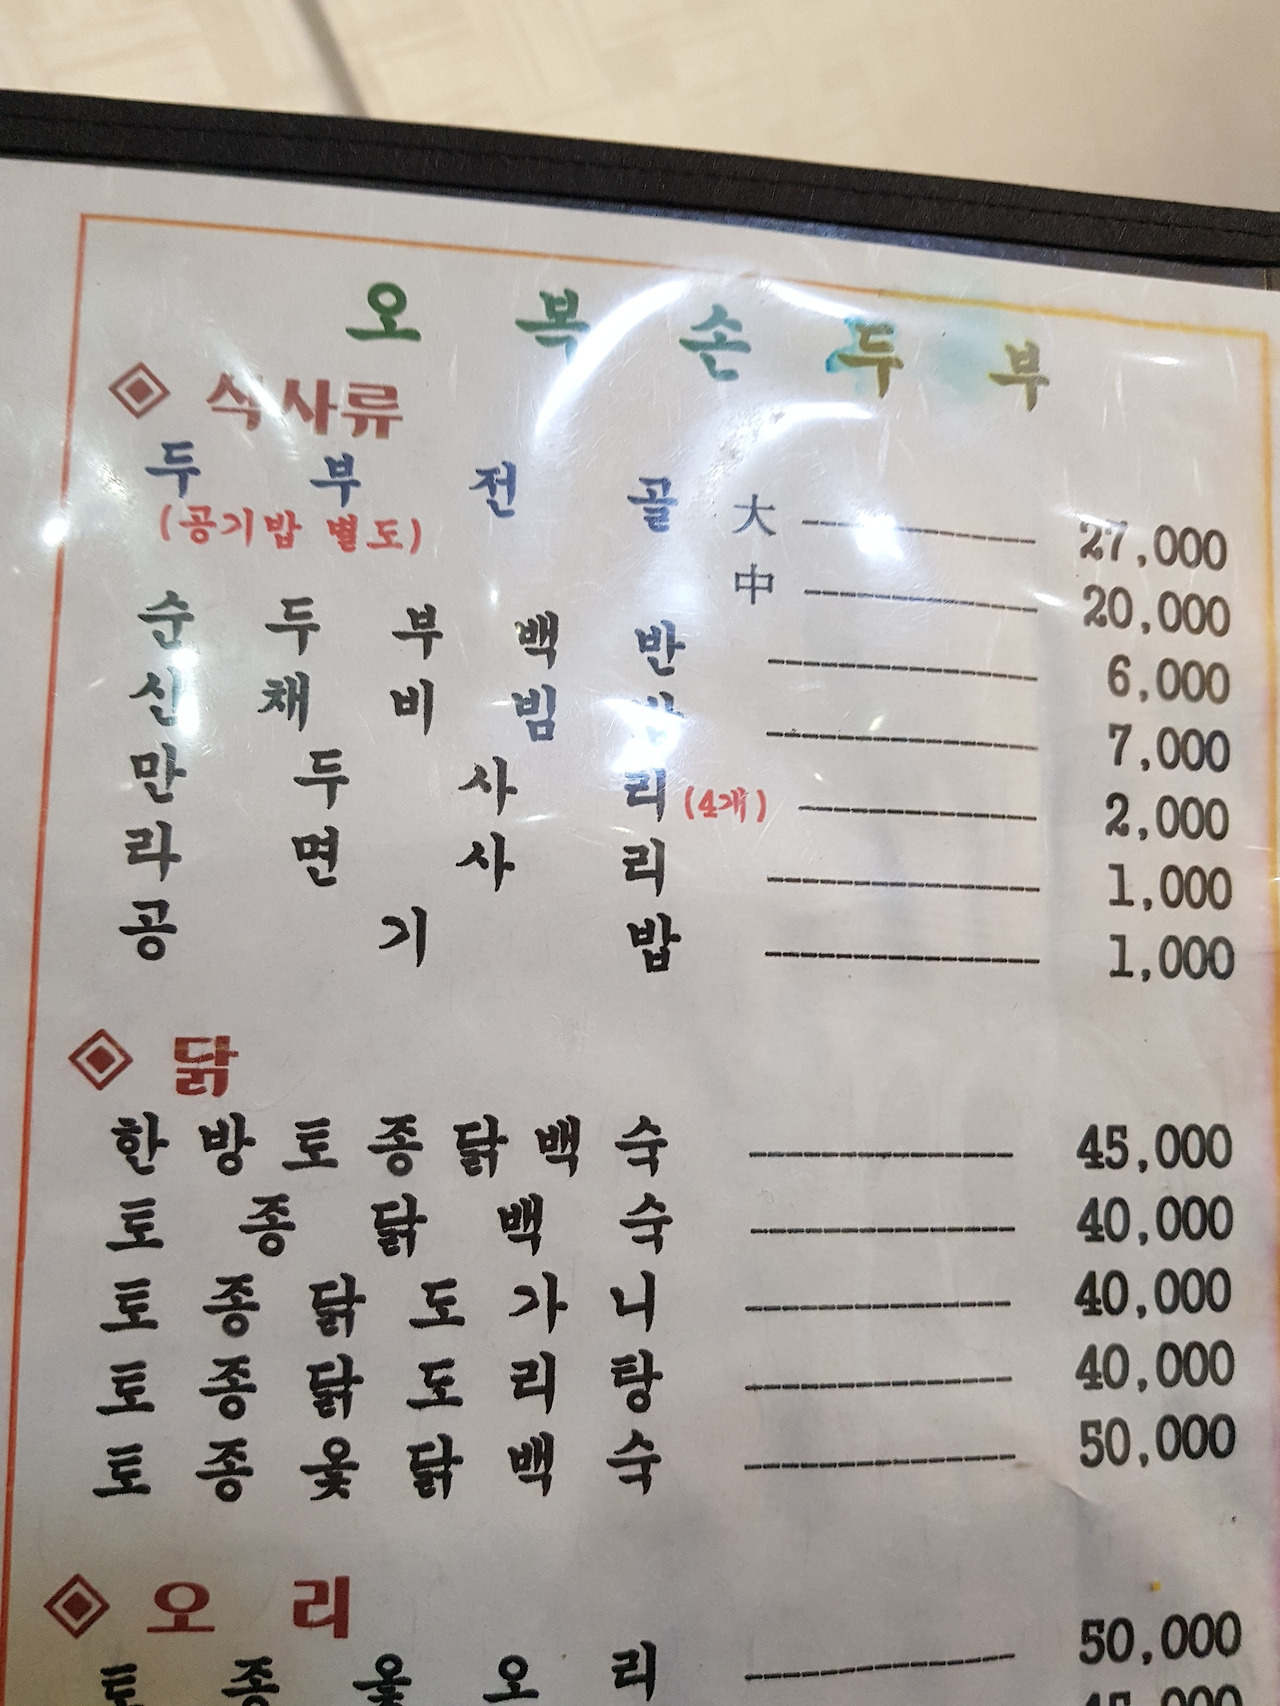 오복손두부
◈ 식사류
두부전골 大 ---------- 27,000
(공기밥 별도) 中 ---------- 20,000
순두부백반 ---------- 6,000
산채비빔밥 ---------- 7,000
만두사리 (4개) ---------- 2,000
라면사리 ---------- 1,000
공기밥 ---------- 1,000
◈ 닭
한방토종닭백숙 ---------- 45,000
토종닭백숙 ---------- 40,000
토종닭도가니 ---------- 40,000
토종닭도리탕 ---------- 40,000
토종옻닭백숙 ---------- 50,000
◈ 오리
토종옻오리 ---------- 50,000